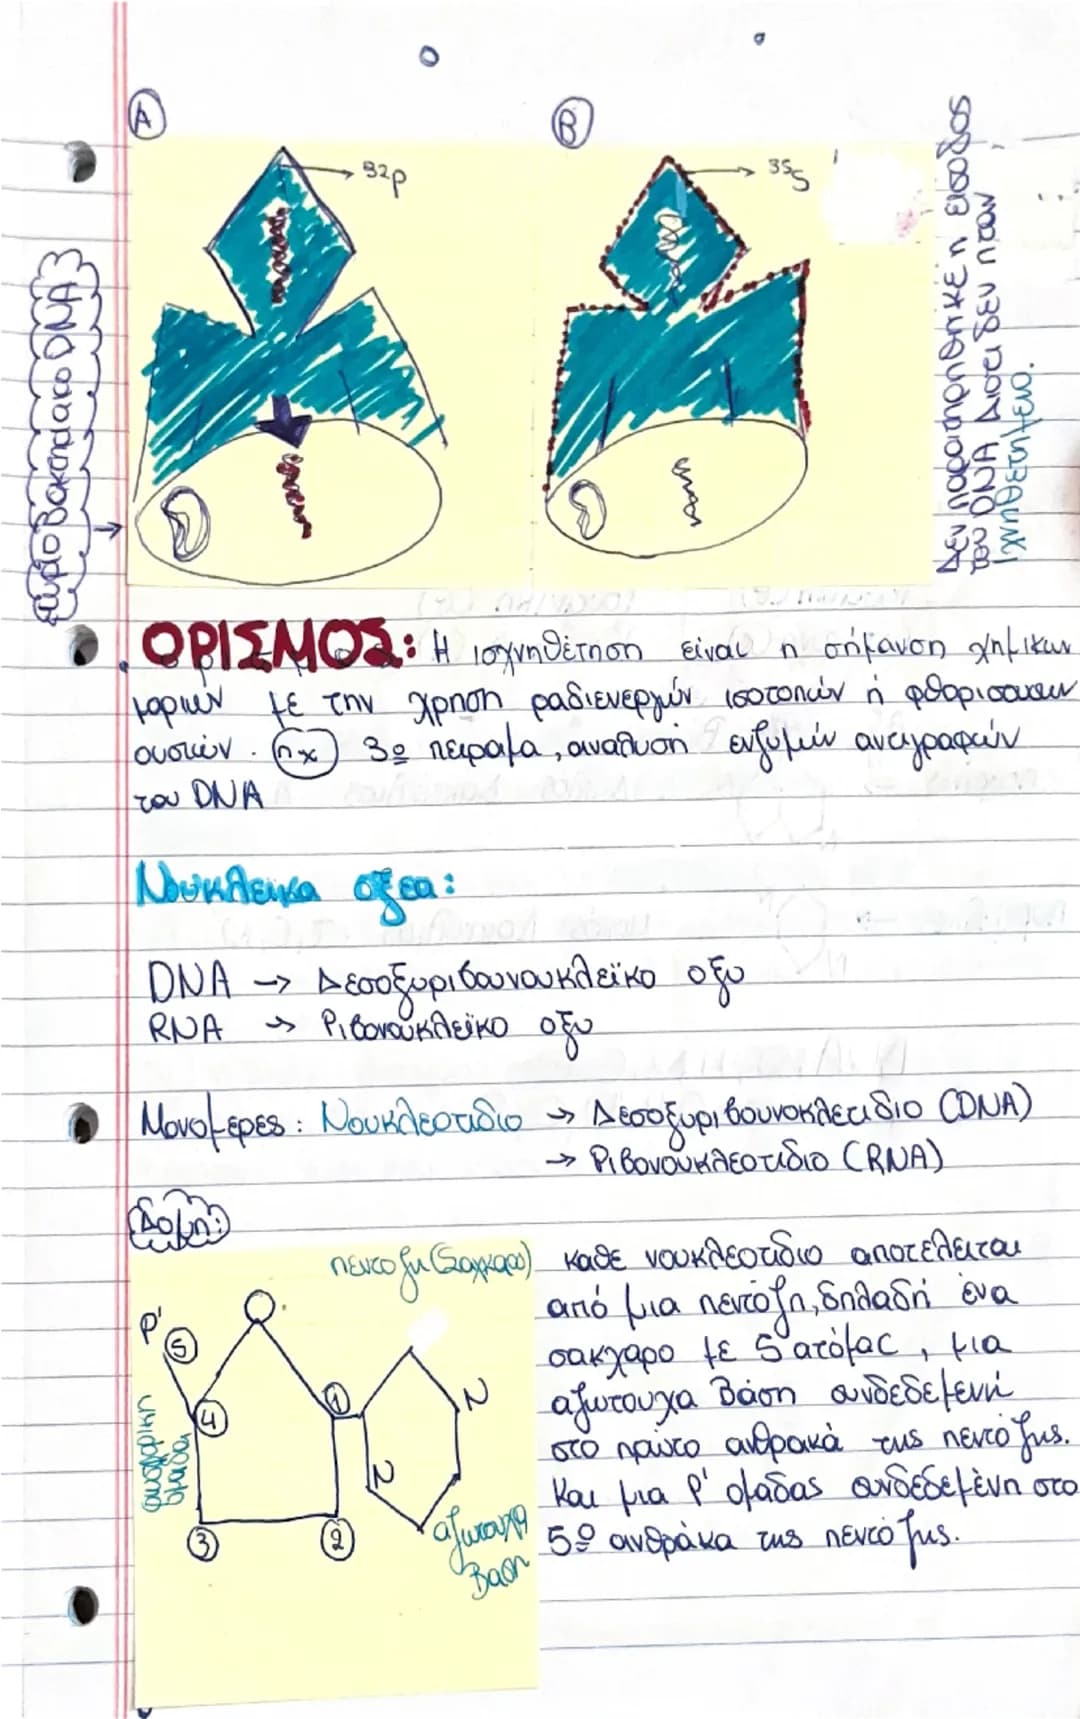 A
B
32p
35s
Κύριο Βακτηριακο DNA
Δεν παρατηρηθηκε η εισοδος
του DNA Διοτι δεν ηταν
ιχνηθετημενο.
ΟΡΙΣΜΟΣ: Η ισχνηθέτηση είναι η σήμανση χημικων
μοριων με την χρηση ραδιενεργών ισοτοπών ή φθοριζουσων
ουσιών. πχ 3º πειραμα, αναλυση ενζυμών αντιγραφών
του DNA
Νουκλεικα οξεα:
DNA → Δεσοξυριβουνουκλεϊκο οξυ
RNA → Ριβονουκλεϊκο οξυ
Μονομερες: Νουκλεοτιδιο → Δεσοξυριβουνοκλεοτιδιο (DNA)
→ Ριβονουκλεοτιδιο (RNA)
Δομη:
πεντοζη (Σακχαρο)
P'
5
4
1
3
2
N
N
φωσφορικη
ομαδα
αζωτουχα
Βαση
καθε νουκλεοτιδιο αποτελειται
από μια πεντόζη, δηλαδή ένα
σακχαρο με 5 ατόμας, μια
αζωτουχα Βάση συνδεδεμενή
στο πρώτο ανθρακά της πεντόζης.
Και μια P' ομαδας συνδεδεμένη στο
5º ανθράκα της πεντόζης.